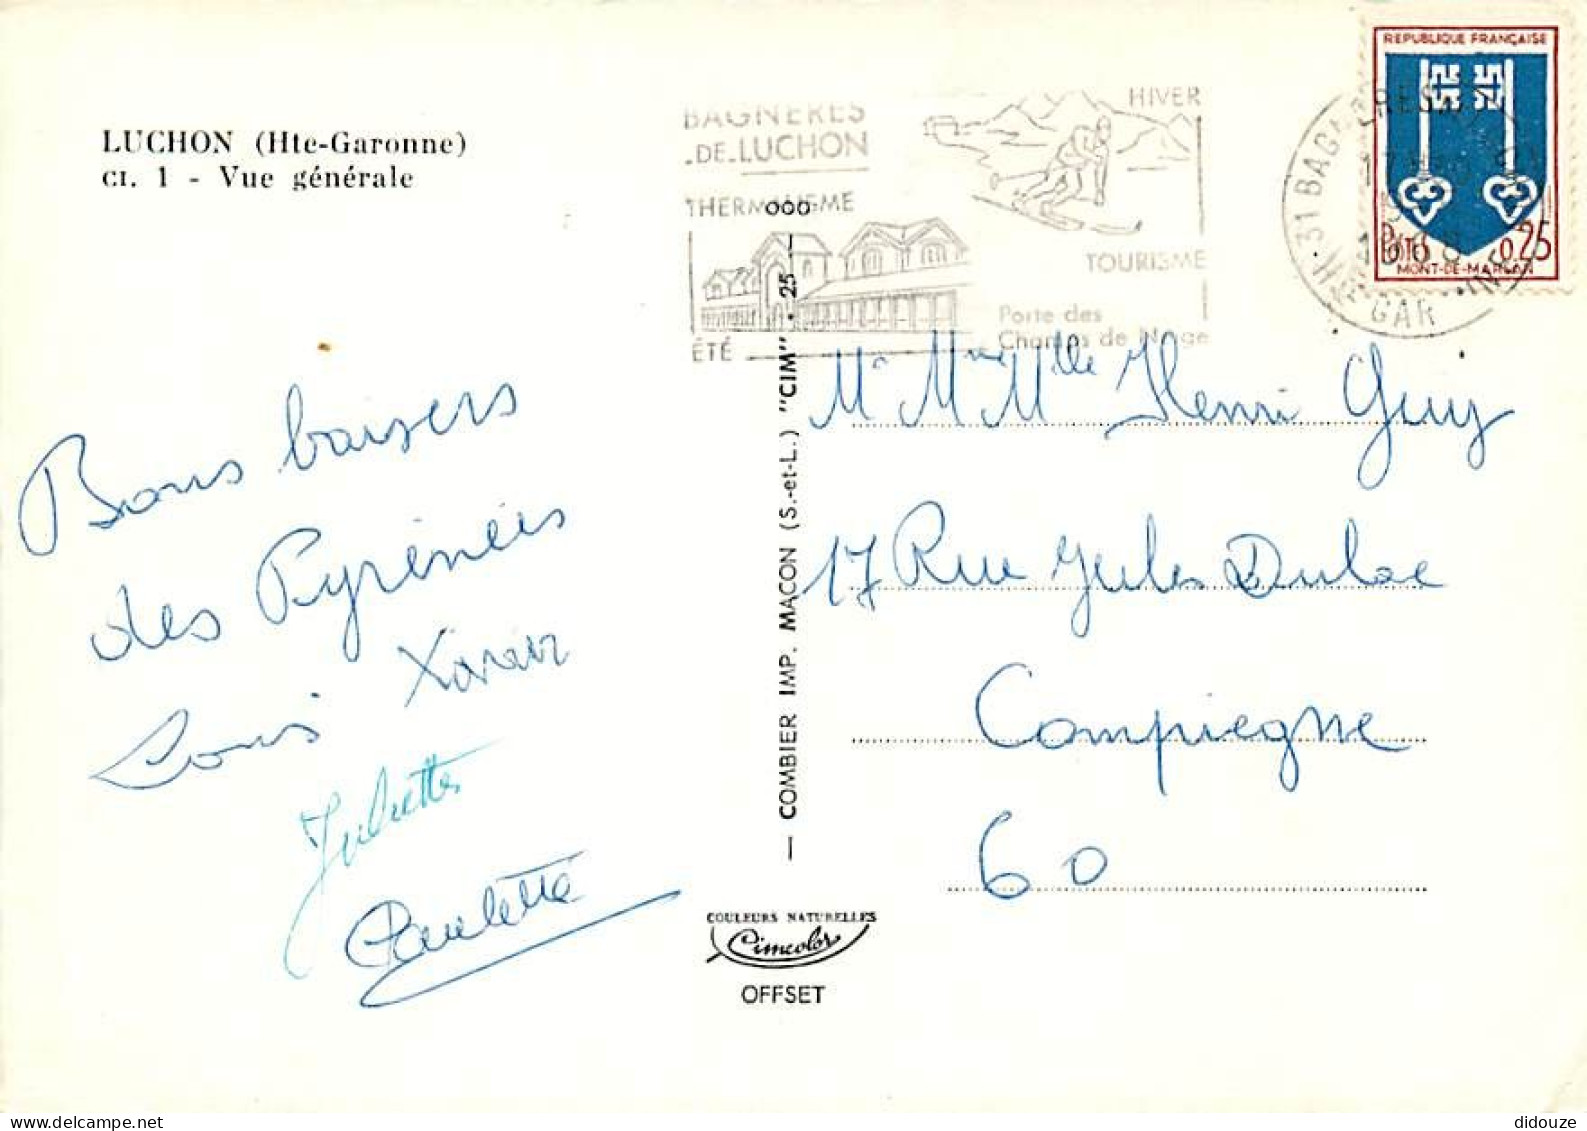 LUCHON (Hte-Garonne)
CI. 1 - Vue générale
BAGNERES
DE LUCHON
THERMALISME
ÉTÉ
HIVER
TOURISME
Porte des
Champs de Neige
31 BAGNERES
Hte GAR
REPUBLIQUE FRANÇAISE
POSTES 0,25
MONT-DE-MARSAN
Bons baisers
des Pyrénées
Louis
Juliette
Paulette
— COMBIER IMP. MACON (S.-et-L.) "CIM" • 25 — 000
Mr Mme Mlle Henri Guy
17 Rue Jules Duloc
Compiegne
60
COULEURS NATURELLES
Cimcolor
OFFSET
didouze